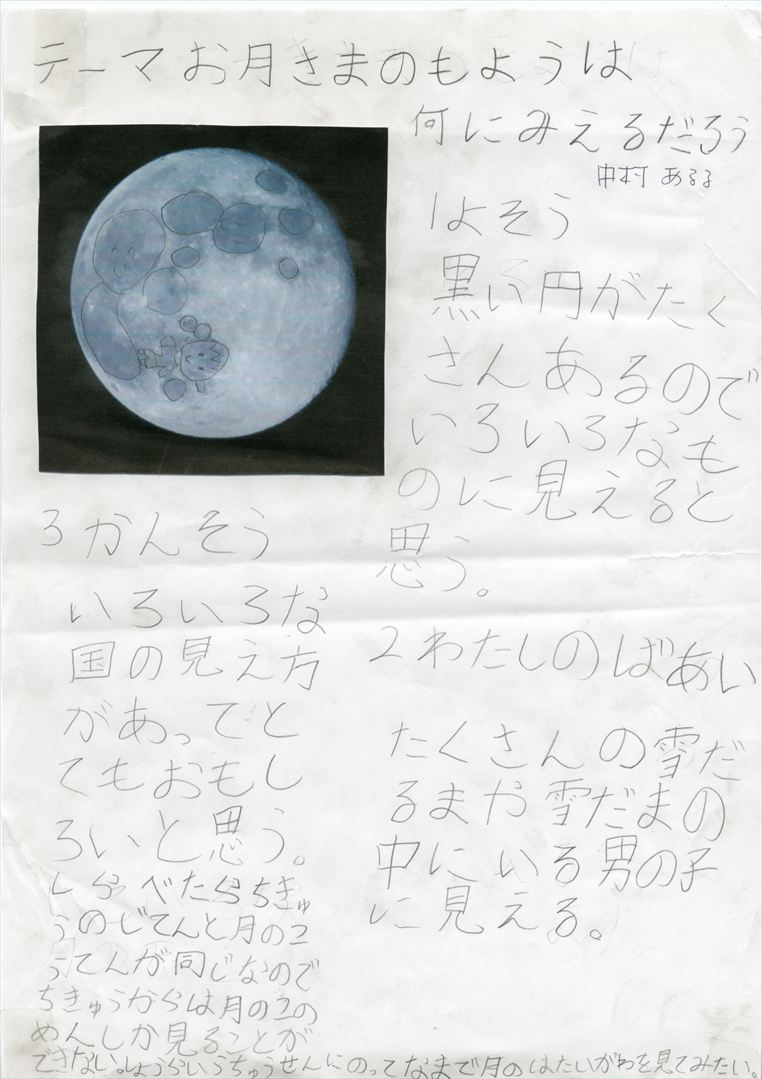 テーマお月さまのもようは
何にみえるだろう
中村 あるる
1よそう
黒い円がたく
さんあるので
いろいろなも
のに見えると
思う。
2わたしのばあい
たくさんの雪だ
るまや雪だまの
中にいる男の子
に見える。
3かんそう
いろいろな
国の見え方
があってと
てもおもし
ろいと思う。
しらべたらちきゅ
うのじてんと月のこ
うてんが同じなので
ちきゅうからは月のこの
めんしか見ることが
できない。しょうらいうちゅうせんにのってなまで月のはたいがわを見てみたい。